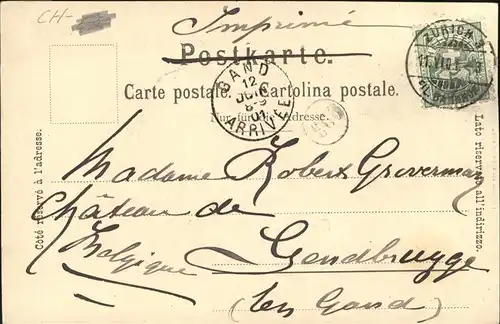 CH-
Imprimé
Postkarte.
Carte postale. Cartolina postale.
Nur für die Adresse.
GAND
12
JUIN
8-9
01
ARRIVÉE
ZÜRICH
Côté réservé à l'adresse.
Lato riservato all'indirizzo.
Madame Robert
Château de
Gendbrugge
Belgique
(lez Gand)